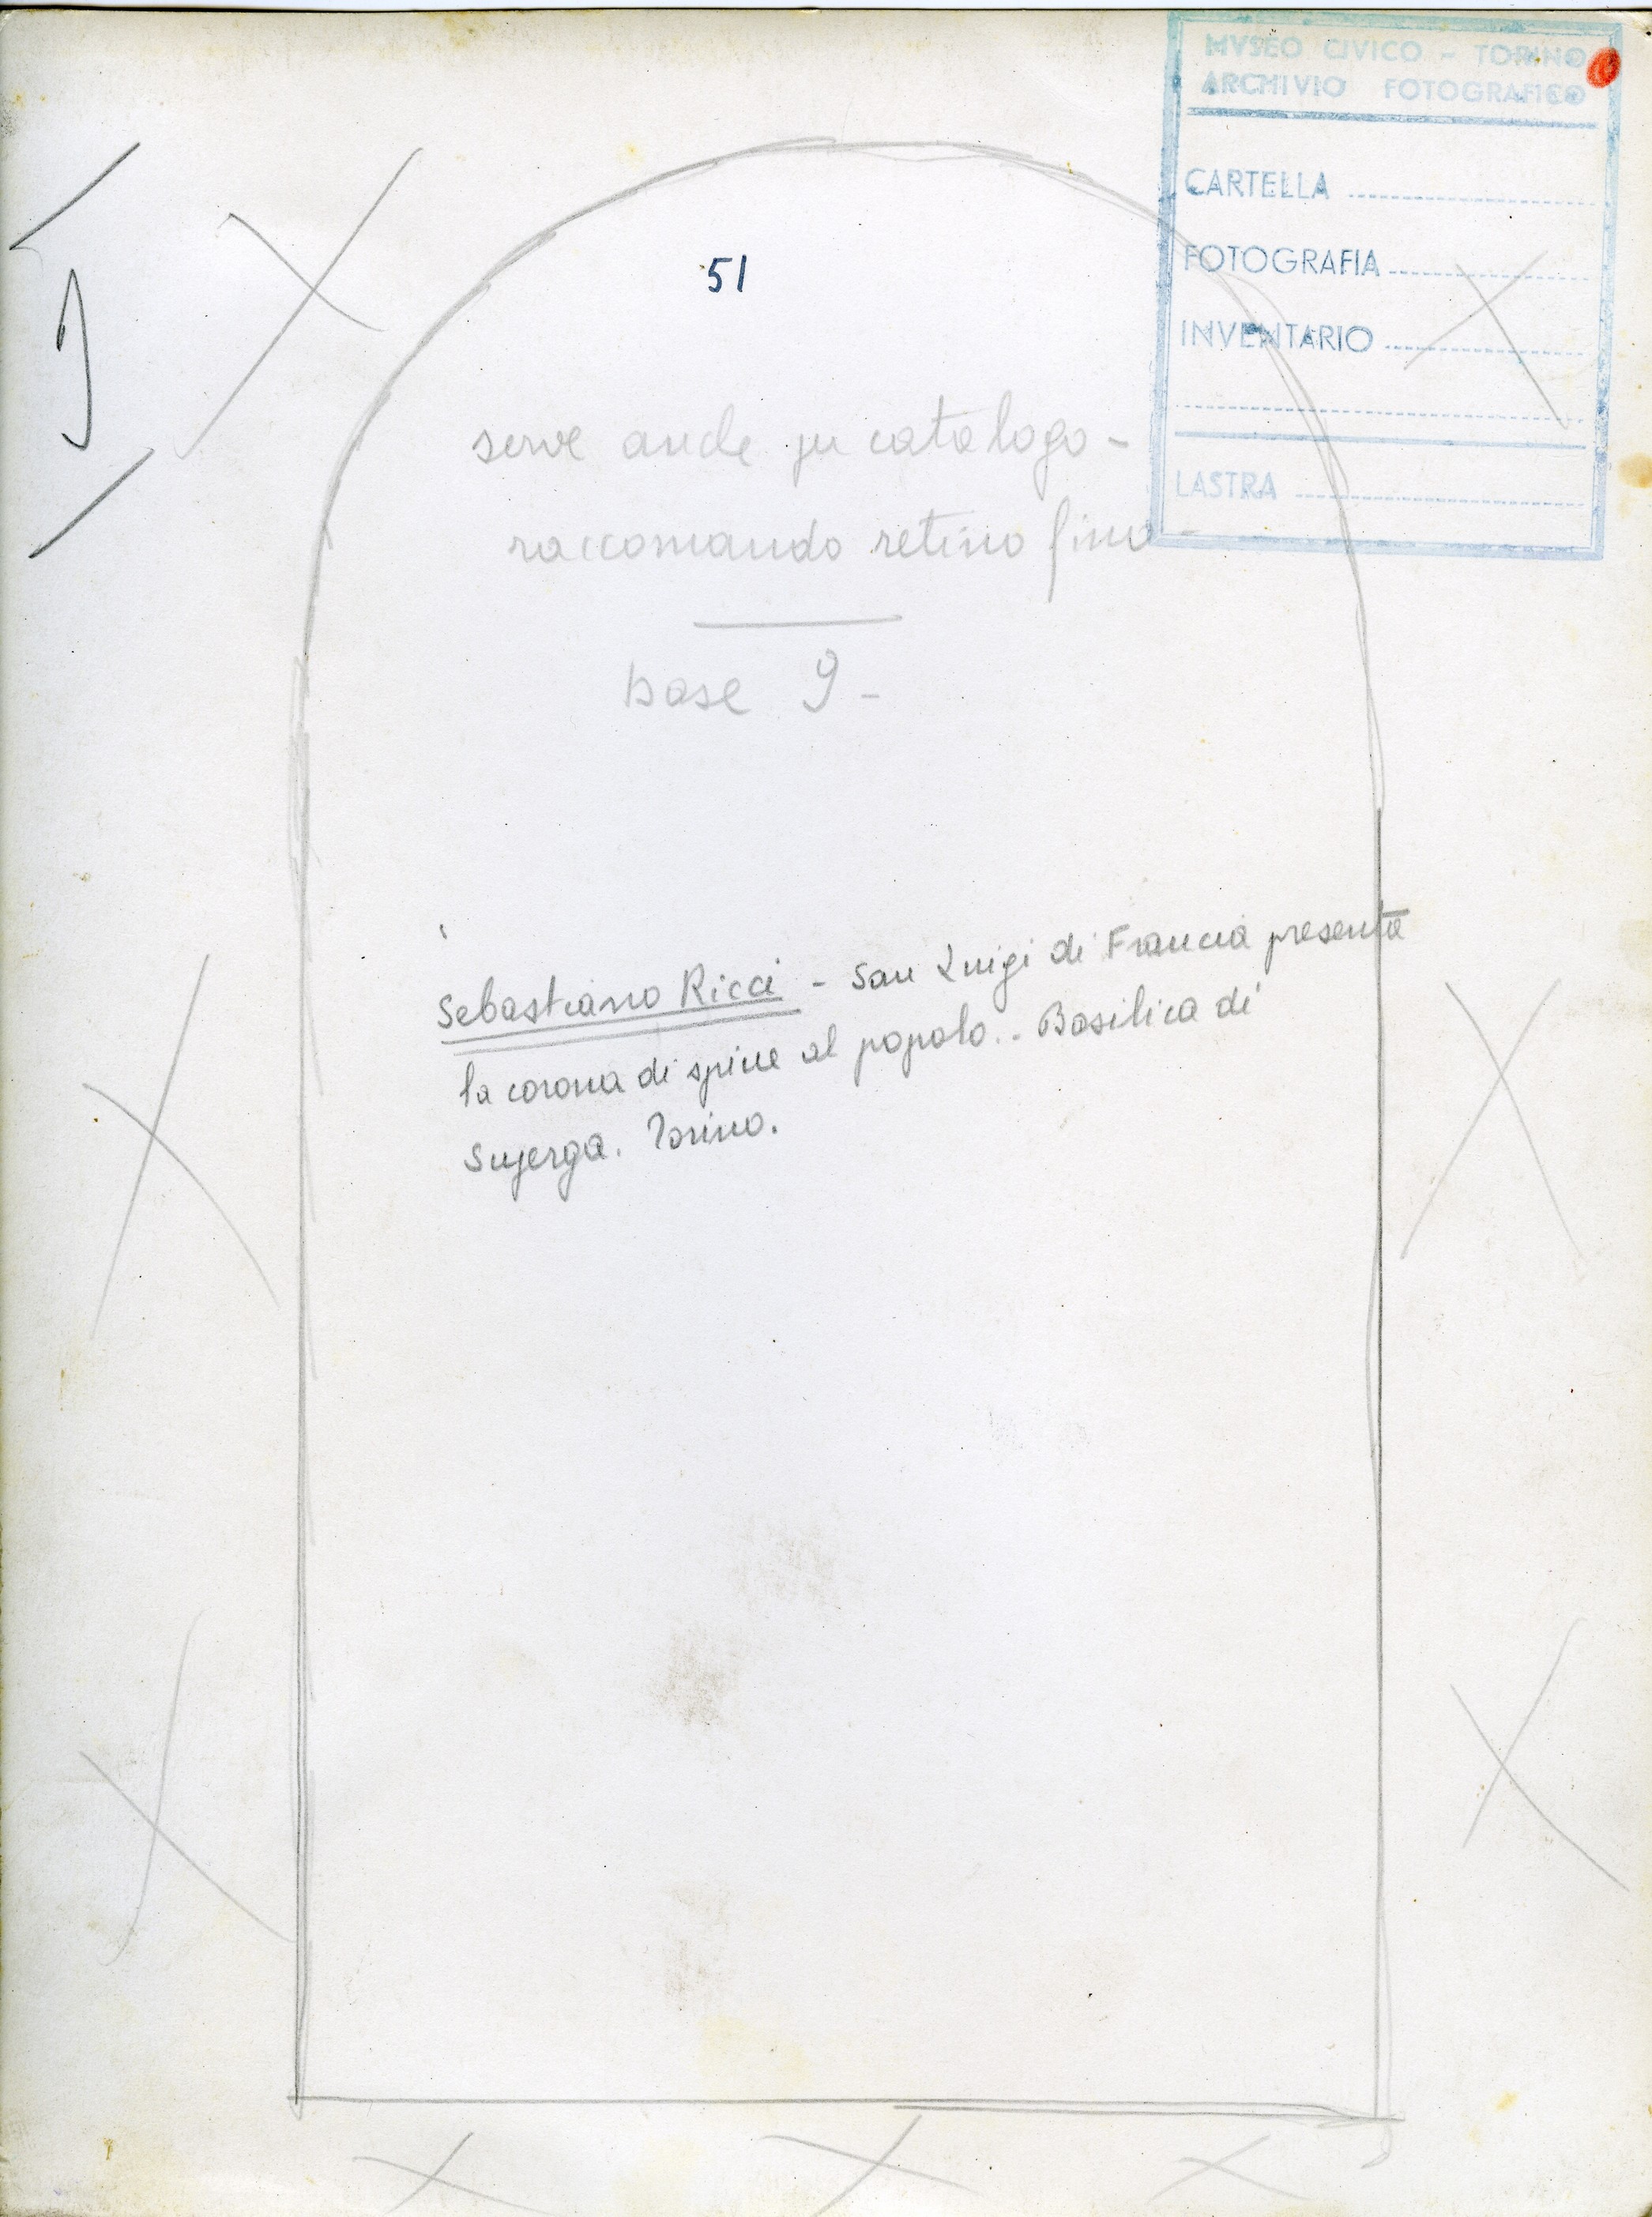 MVSEO CIVICO - TORINO
ARCHIVIO FOTOGRAFICO
CARTELLA
FOTOGRAFIA
INVENTARIO
LASTRA
9
51
serve anche per catalogo -
raccomando retino fino -
base 9 -
Sebastiano Ricci - San Luigi di Francia presenta
la corona di spine al popolo. - Basilica di
Superga. Torino.